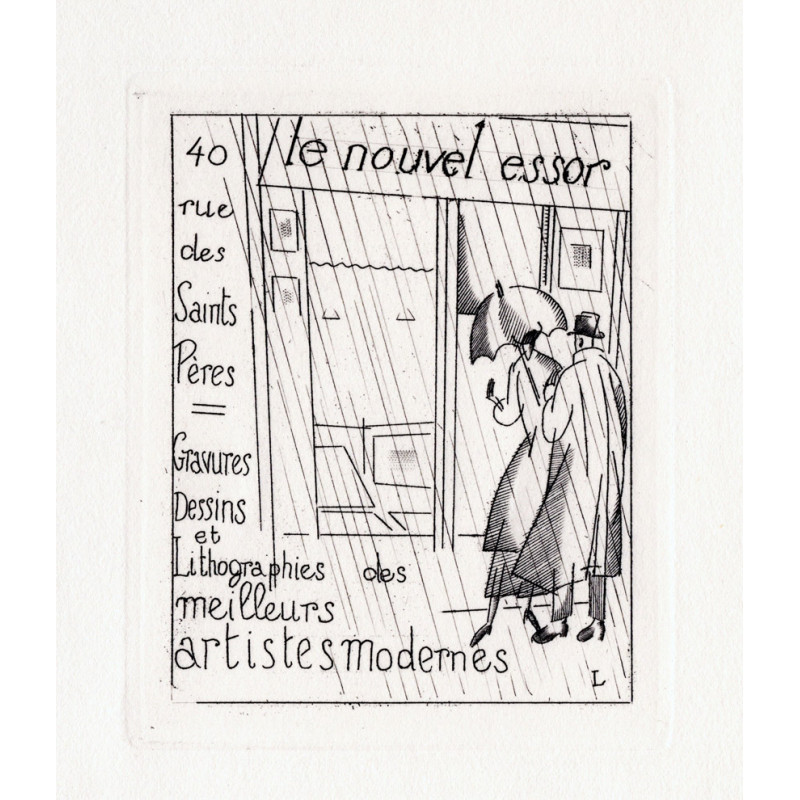 le nouvel essor
40
rue
des
Saints
Pères
Gravures
Dessins
et
Lithographies des
meilleurs
artistes modernes
L